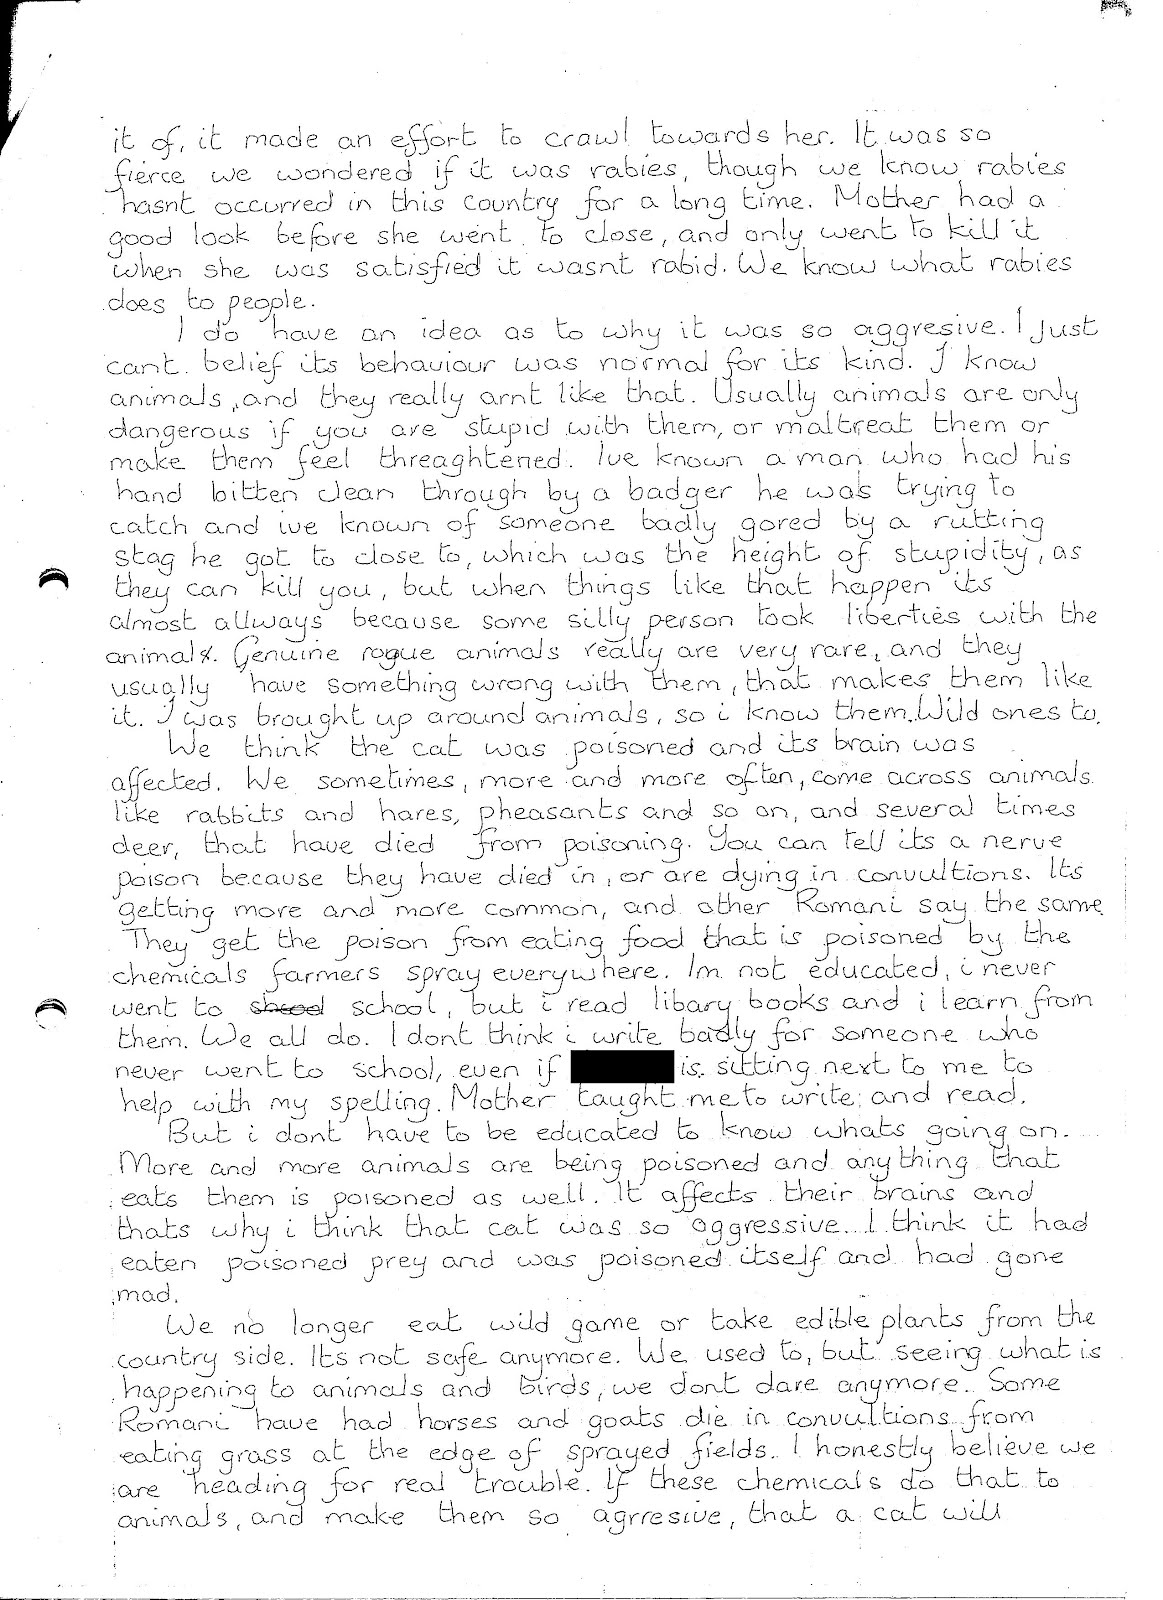 it of, it made an effort to crawl towards her. It was so
fierce we wondered if it was rabies, though we know rabies
hasnt occurred in this country for a long time. Mother had a
good look before she went to close, and only went to kill it
when she was satisfied it wasnt rabid. We know what rabies
does to people.
I do have an idea as to why it was so aggresive. I just
cant belief its behaviour was normal for its kind. I know
animals, and they really arnt like that. Usually animals are only
dangerous if you are stupid with them, or maltreat them or
make them feel threaghtened. Ive known a man who had his
hand bitten clean through by a badger he was trying to
catch and ive known of someone badly gored by a rutting
stag he got to close to, which was the height of stupidity, as
they can kill you, but when things like that happen its
almost allways because some silly person took liberties with the
animals. Genuine rogue animals really are very rare, and they
usually have something wrong with them, that makes them like
it. I was brought up around animals, so i know them. Wild ones to.
We think the cat was poisoned and its brain was
affected. We sometimes, more and more often, come across animals
like rabbits and hares, pheasants and so on, and several times
deer, that have died from poisoning. You can tell its a nerve
poison because they have died in, or are dying in convultions. Its
getting more and more common, and other Romani say the same.
They get the poison from eating food that is poisoned by the
chemicals farmers spray everywhere. Im not educated, i never
went to school, but i read libary books and i learn from
them. We all do. I dont think i write badly for someone who
never went to school, even if is sitting next to me to
help with my spelling. Mother taught me to write and read.
But i dont have to be educated to know whats going on.
More and more animals are being poisoned and anything that
eats them is poisoned as well. It affects their brains and
thats why i think that cat was so aggressive. I think it had
eaten poisoned prey and was poisoned itself and had gone
mad.
We no longer eat wild game or take edible plants from the
country side. Its not safe anymore. We used to, but seeing what is
happening to animals and birds, we dont dare anymore. Some
Romani have had horses and goats die in convultions from
eating grass at the edge of sprayed fields. I honestly believe we
are heading for real trouble. If these chemicals do that to
animals, and make them so agrresive, that a cat will